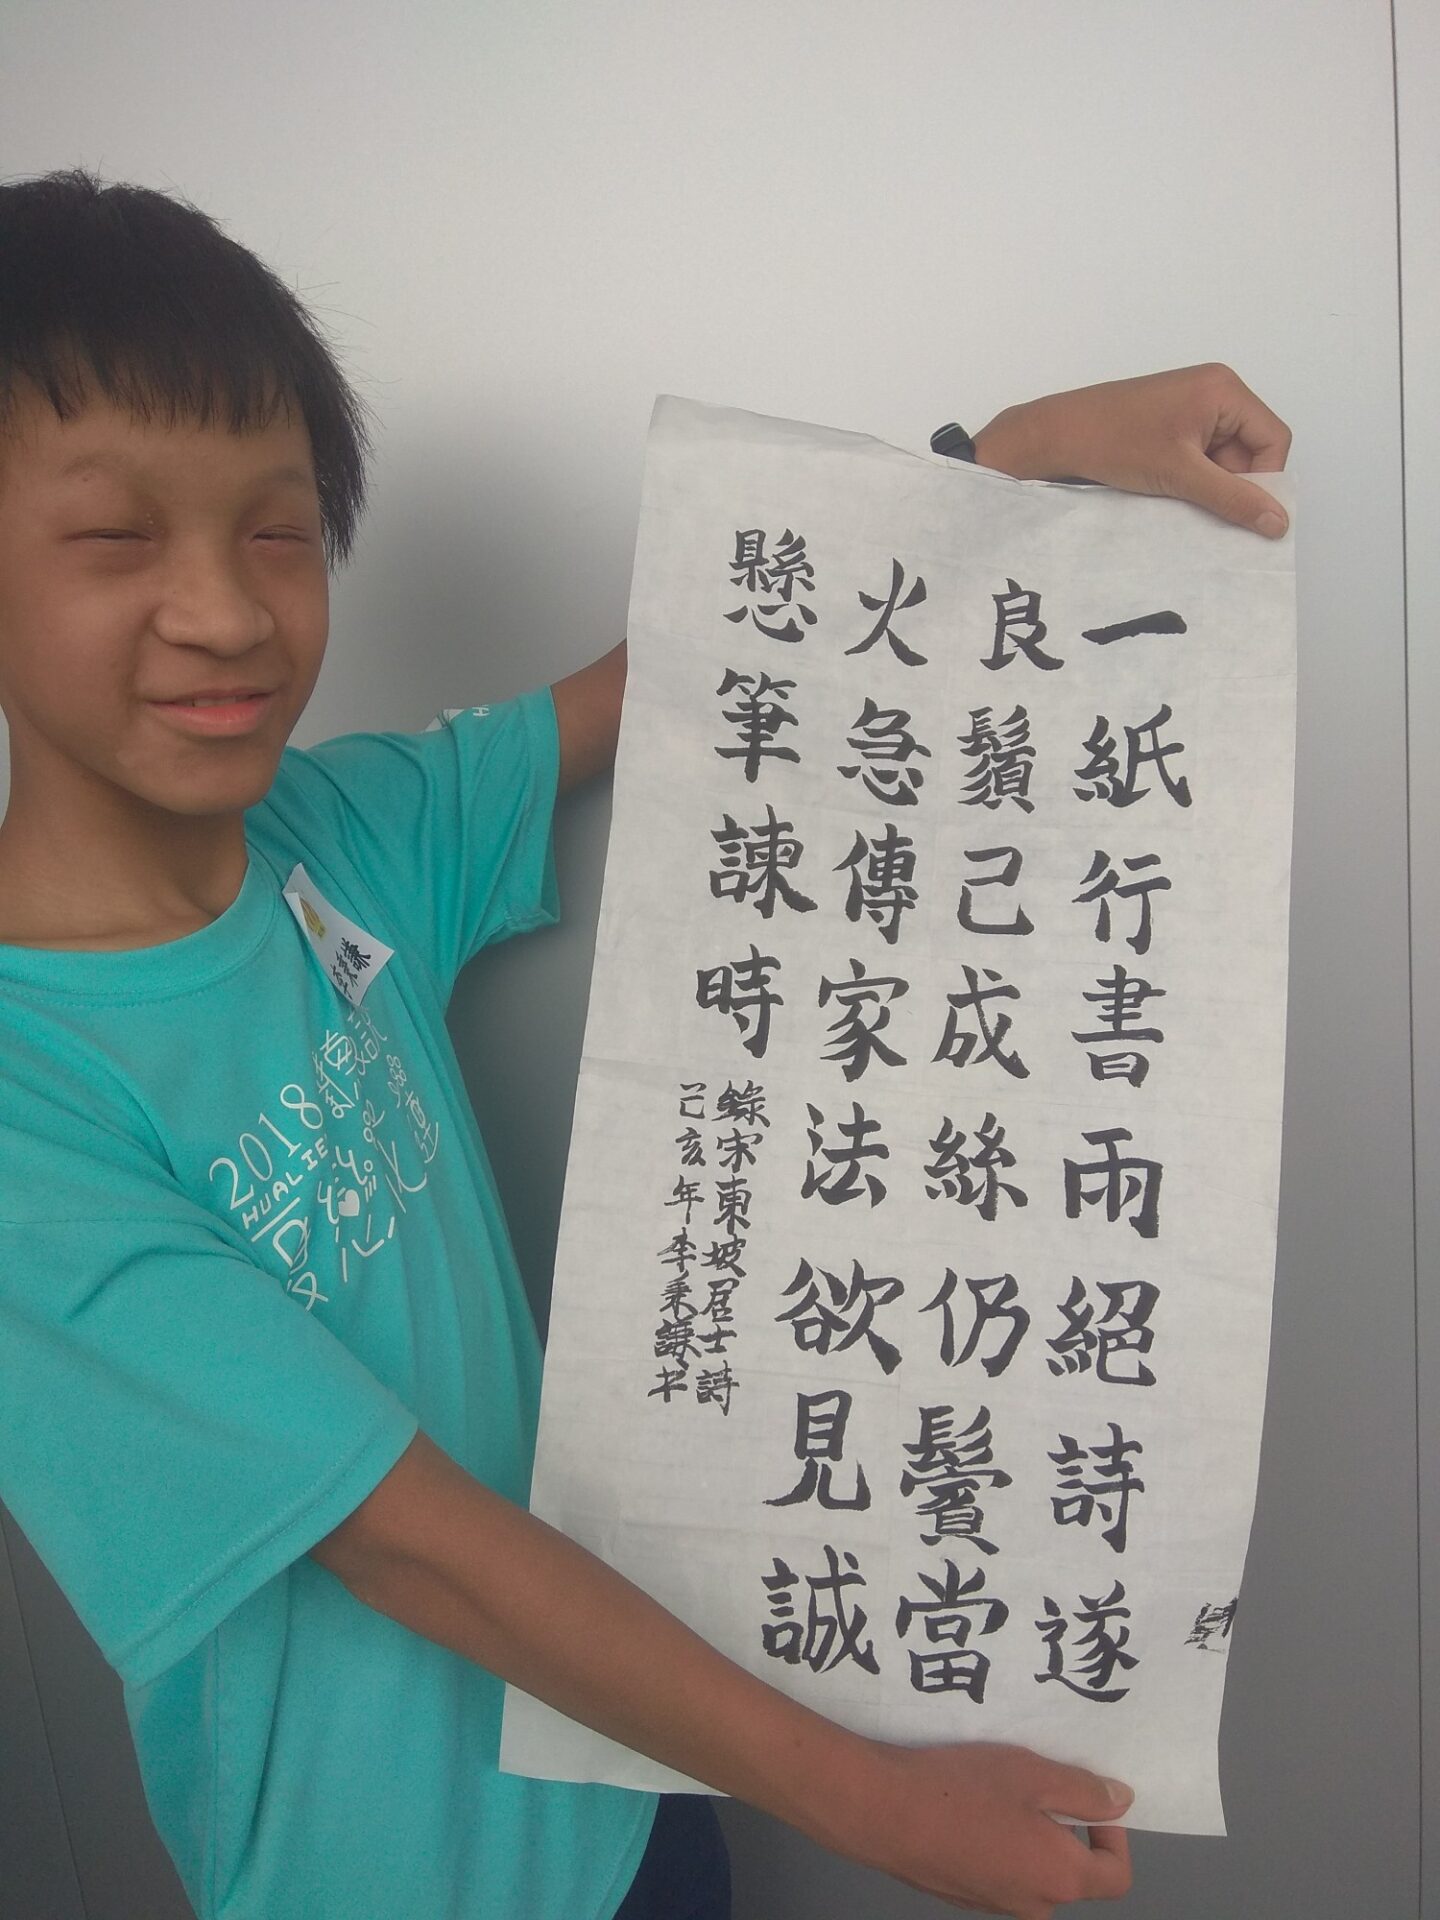 一紙行書兩絕詩遂
良鬚己成絲仍鬢當
火急傳家法欲見誠
懸筆諫時
錄宋東坡居士詩
己亥年李秉謙书
2018
HUALIEN